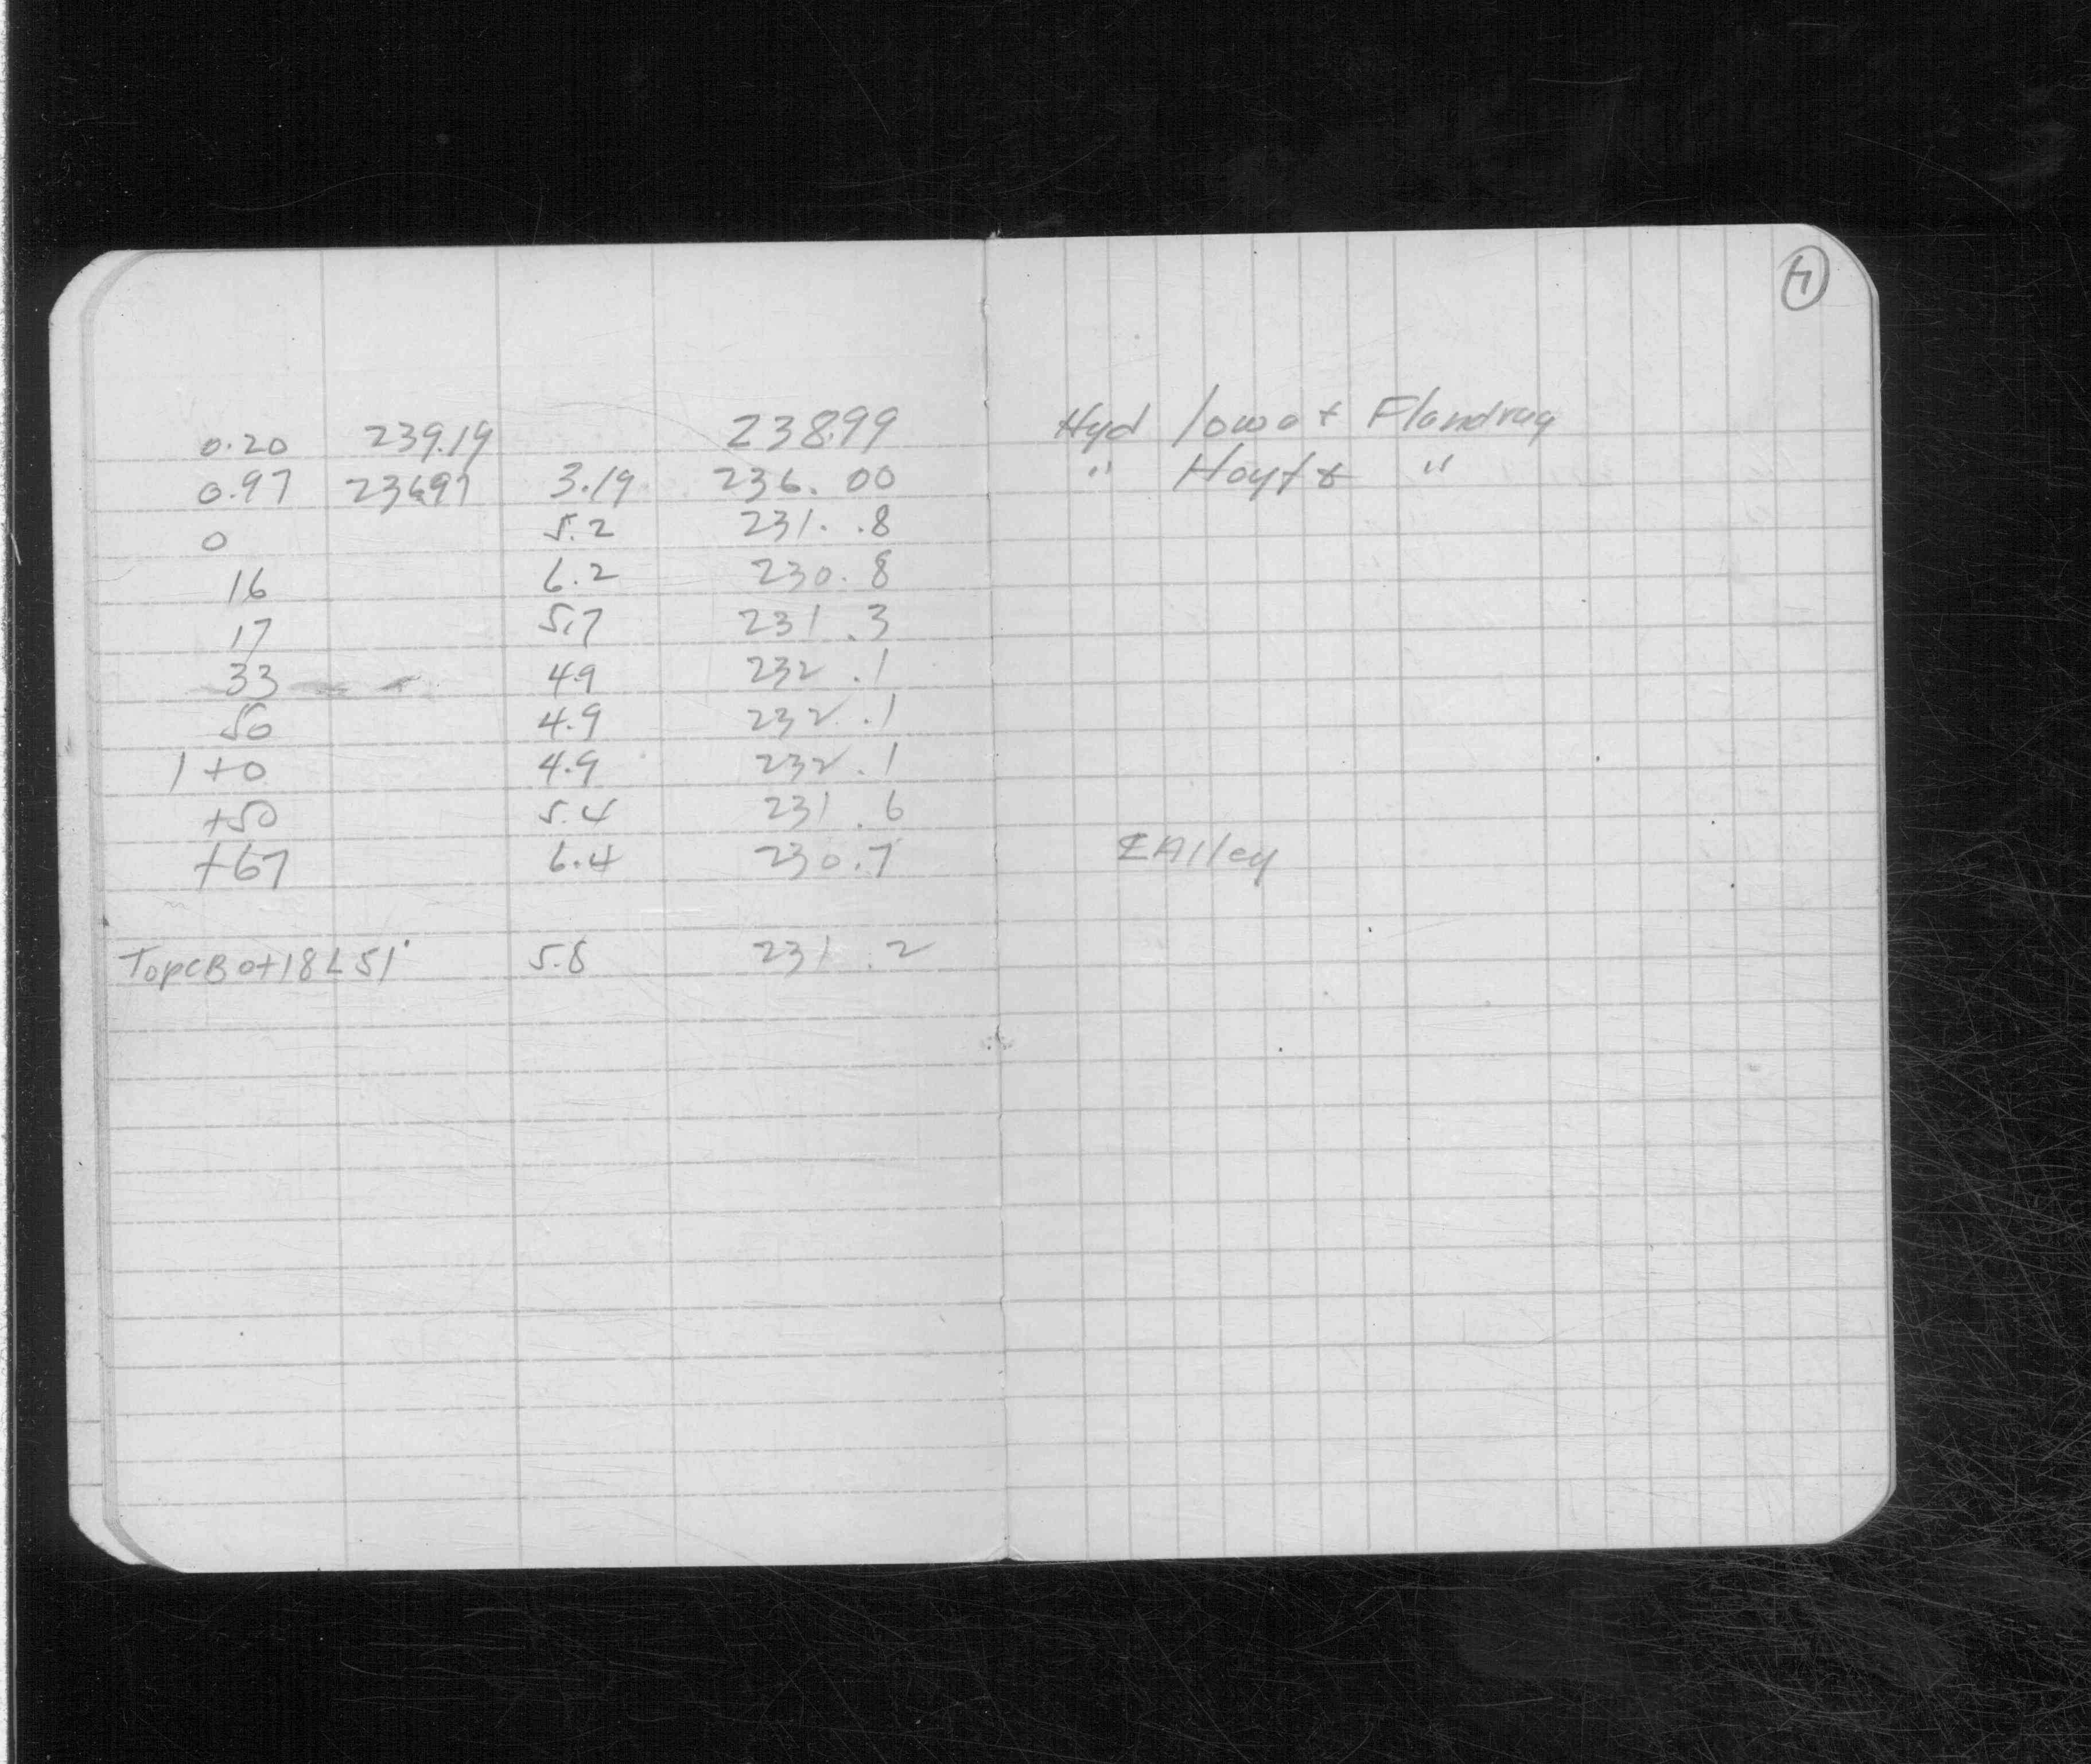 7
0.20 239.19 238.99 Hyd Iowa & Flandrau
0.97 236.97 3.19 236.00 " Hoyt & "
0 5.2 231.8
16 6.2 230.8
17 5.7 231.3
33 4.9 232.1
50 4.9 232.1
1+0 4.9 232.1
+50 5.4 231.6
+67 6.4 230.7 ℄ Alley
Top CB 0+18 L 51' 5.8 231.2